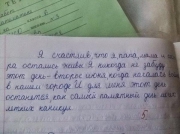 Я счастлив что я, папа, мама и се-
ра остались живы. Я никогда не забуду
этот день - второе июня, когда началась
в нашем городе. И для меня этот день
останется, как самый памятный день
летних каникул.
5